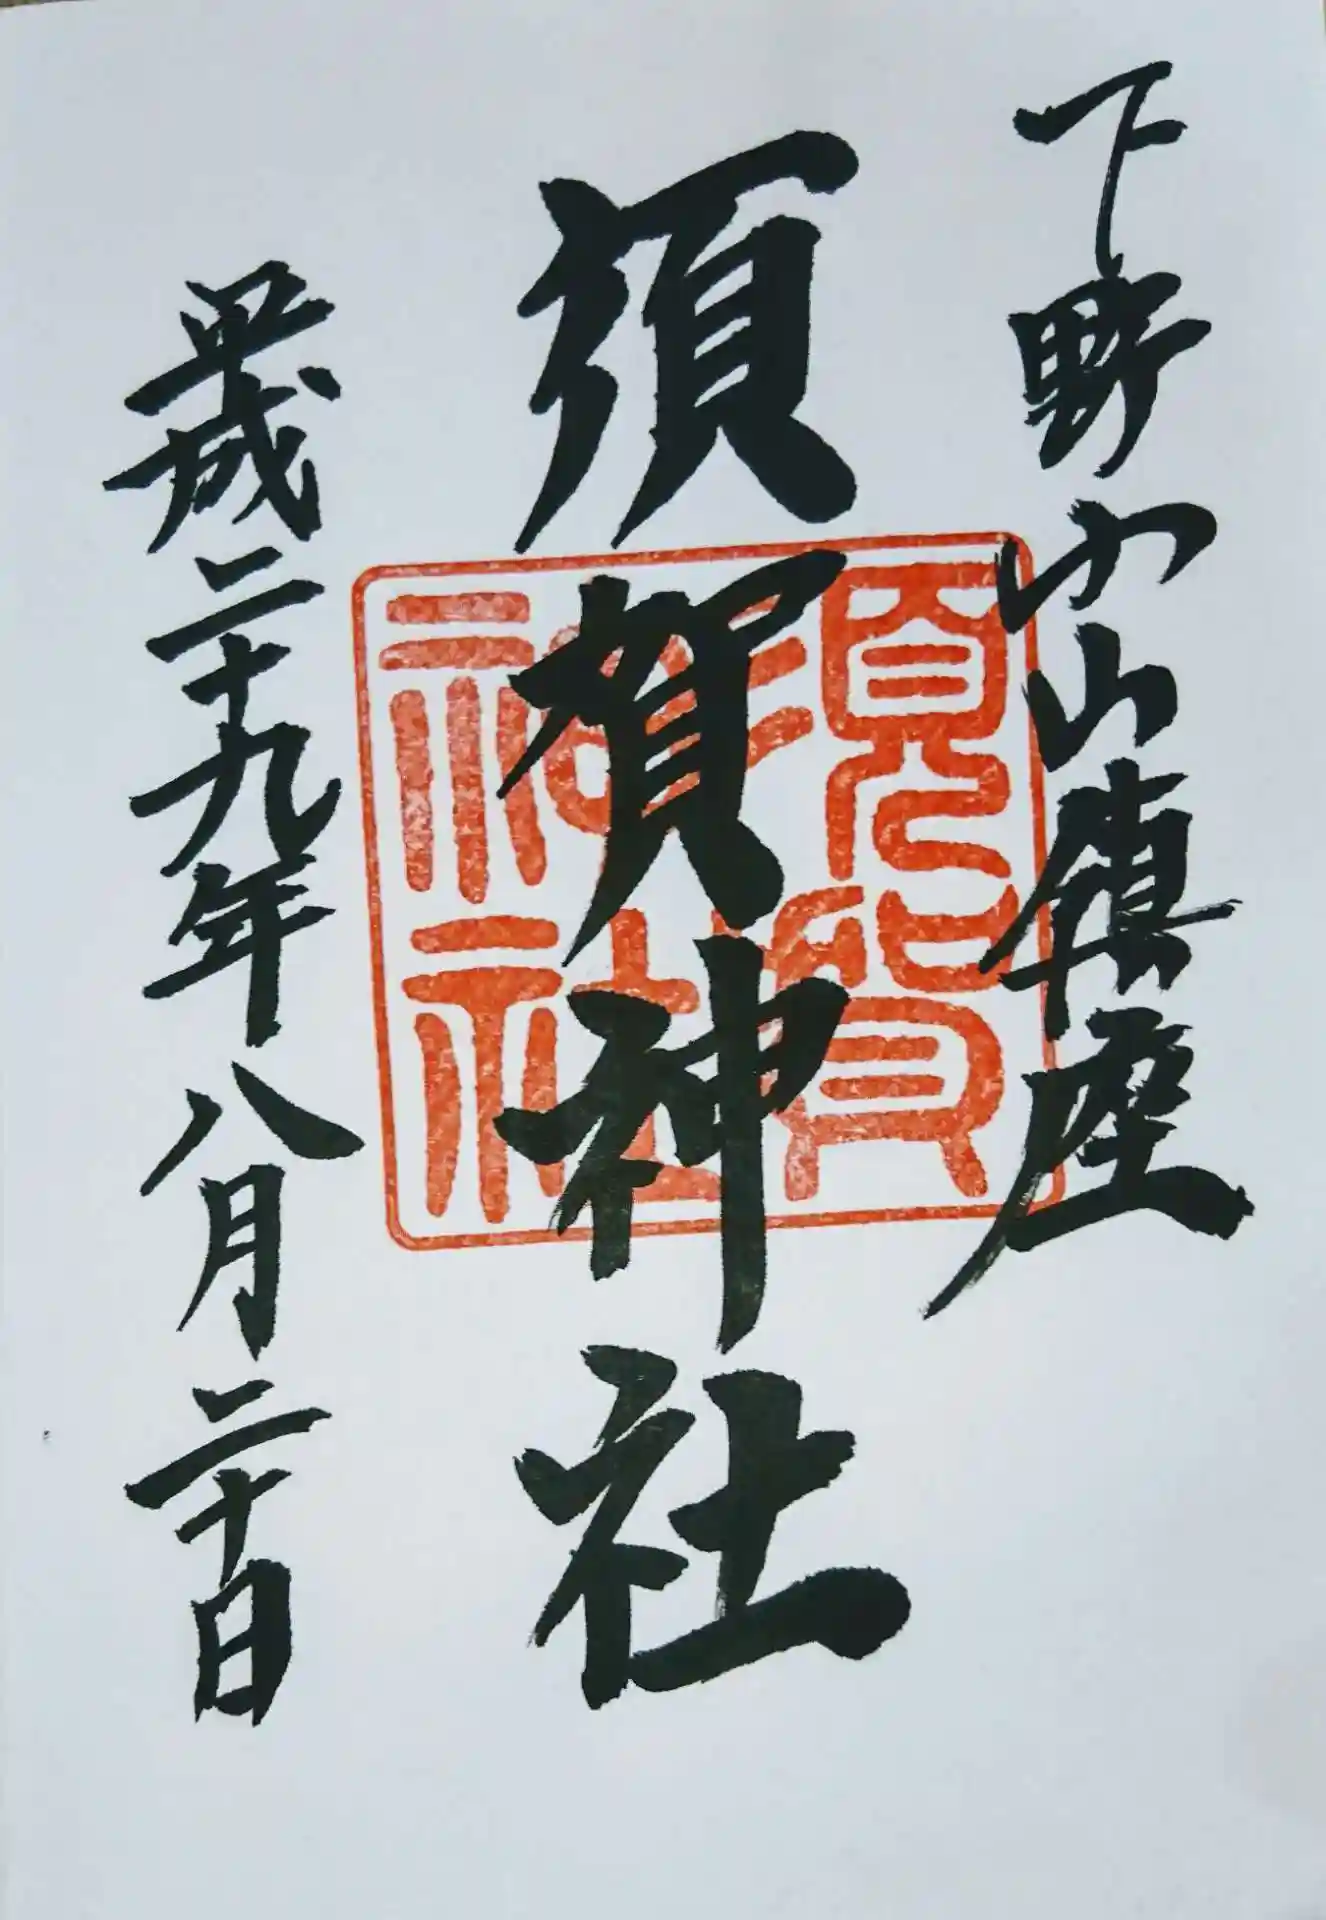 下野小山鎮座
須賀神社
須賀
神社
平成二十九年八月二十日